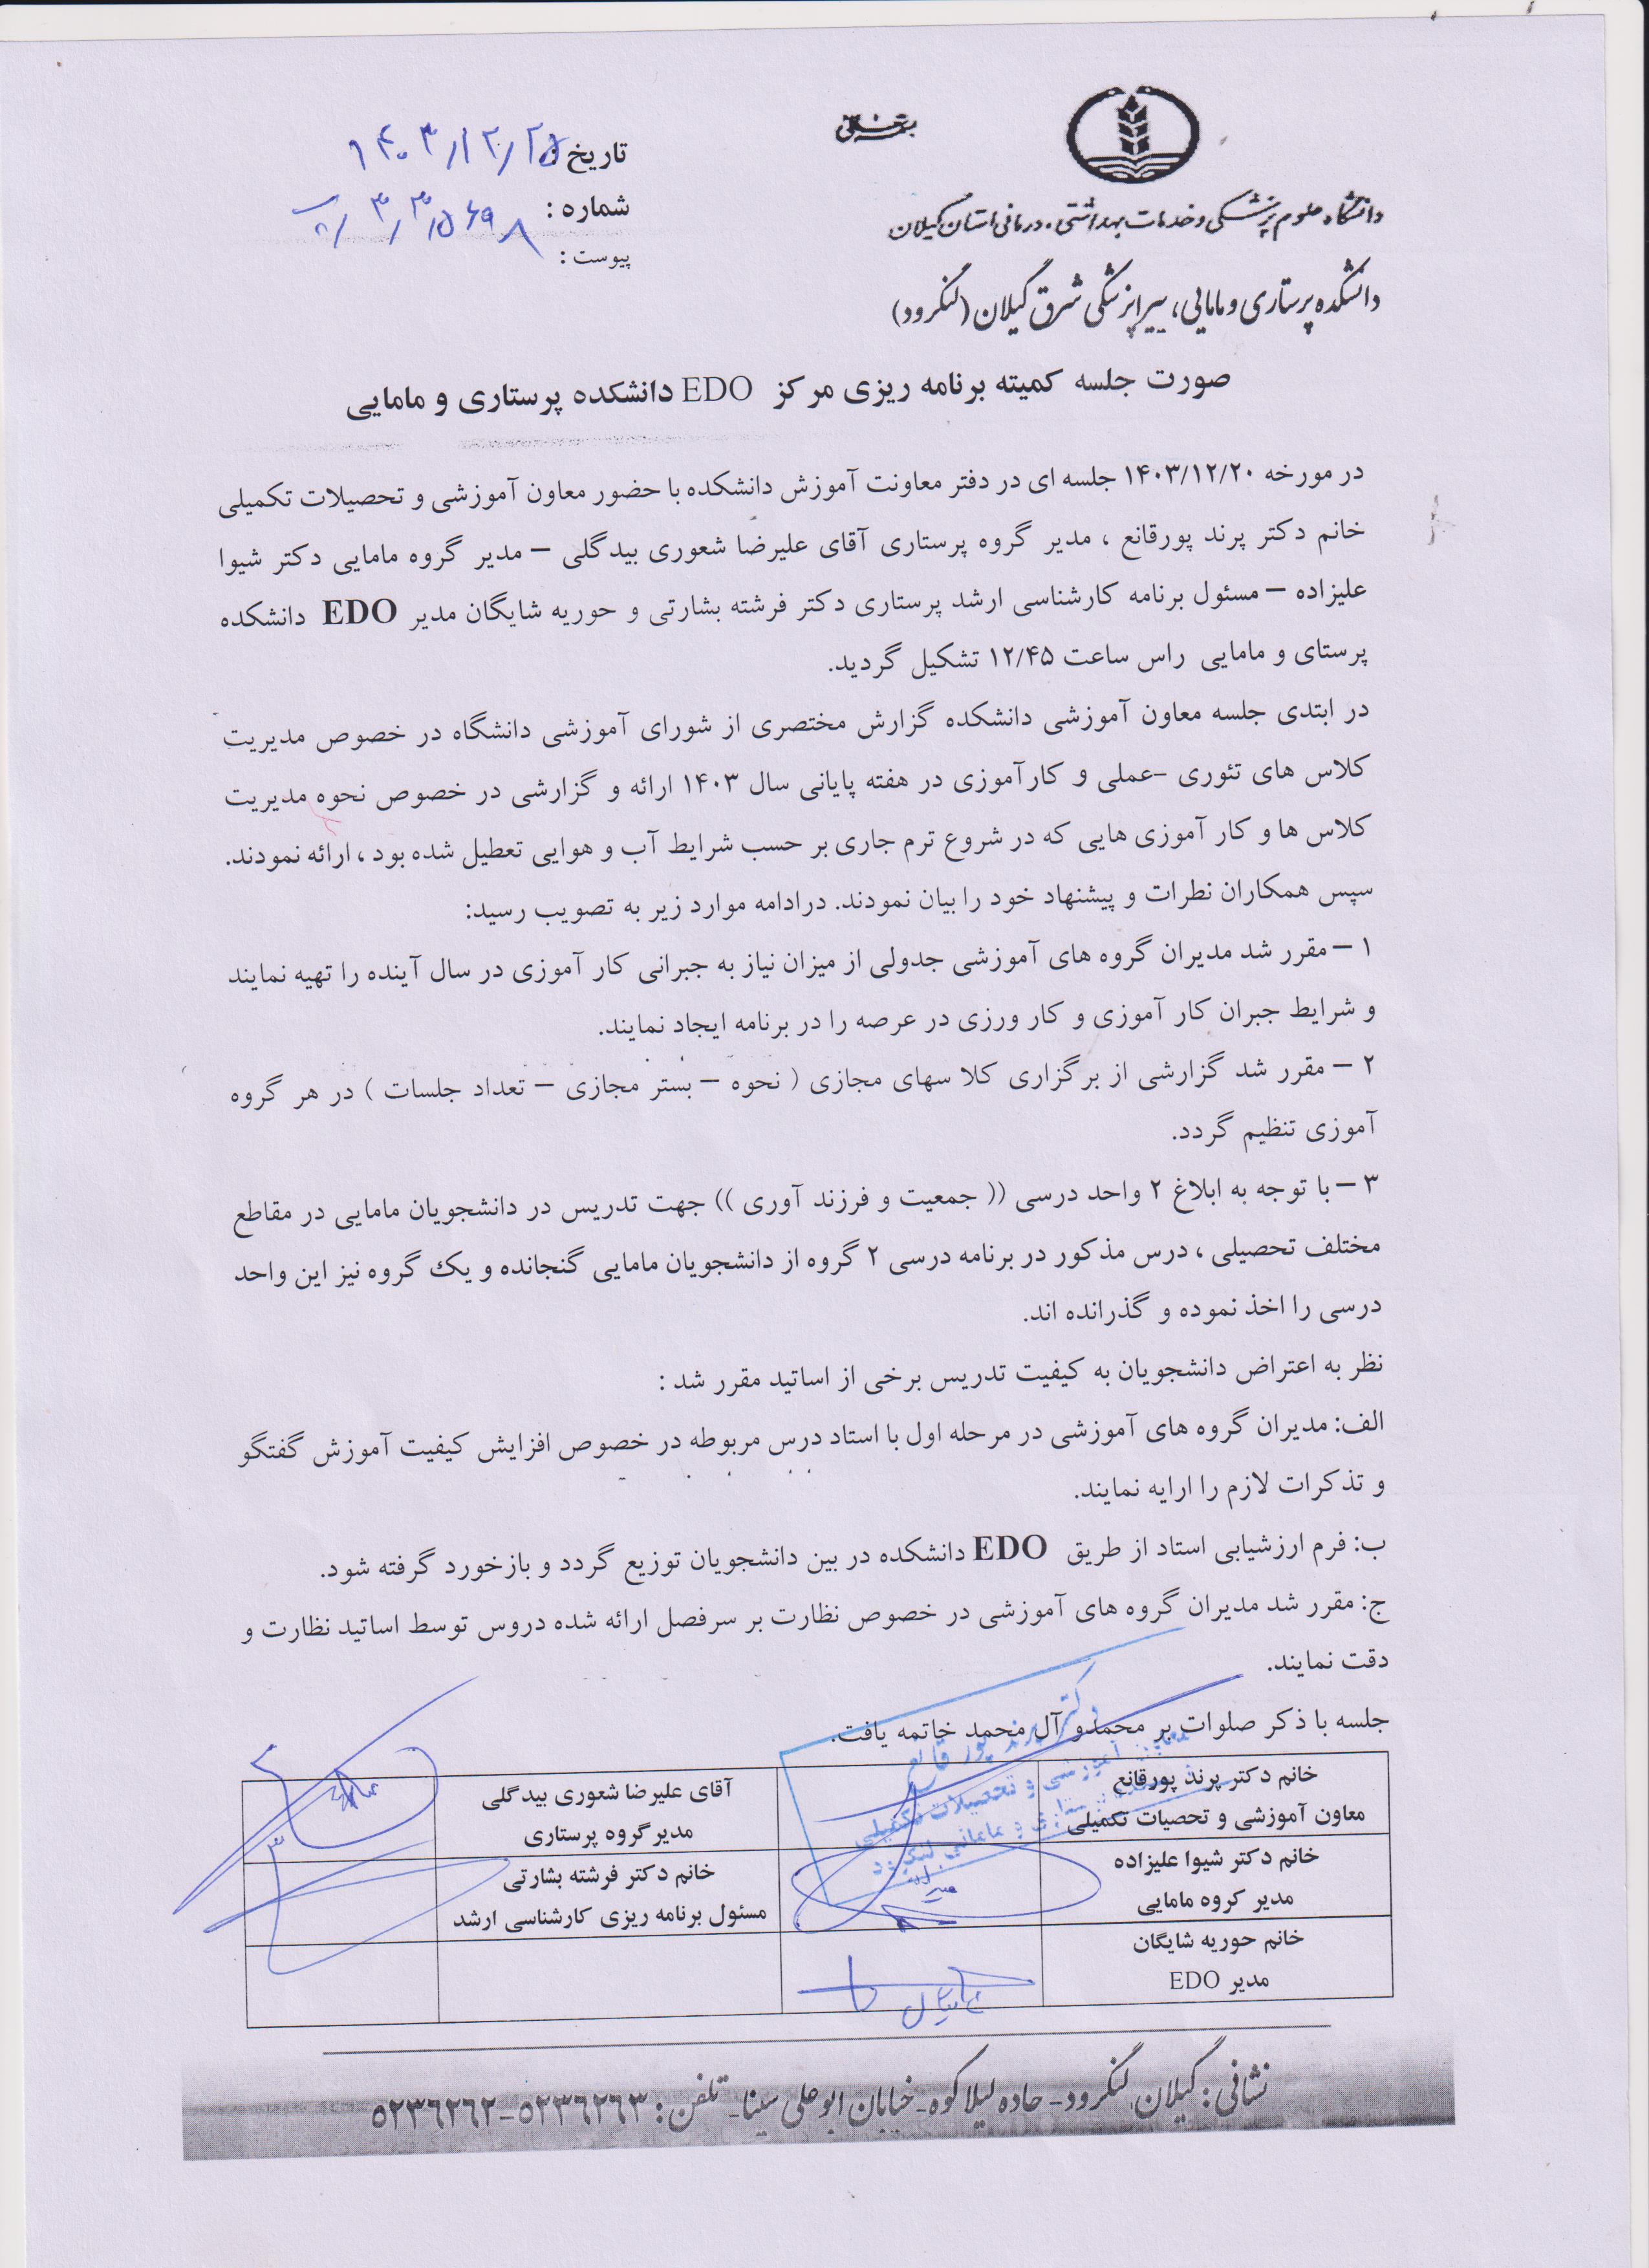 بسمه تعالی
دانشگاه علوم پزشکی و خدمات بهداشتی، درمانی استان گیلان
دانشکده پرستاری و مامایی، پیراپزشکی شرق گیلان (لنگرود)
تاریخ : ۱۴۰۳/۱۲/۲۵
شماره :
پیوست :
صورت جلسه کمیته برنامه ریزی مرکز EDO دانشکده پرستاری و مامایی
در مورخه ۱۴۰۳/۱۲/۲۰ جلسه ای در دفتر معاونت آموزش دانشکده با حضور معاون آموزشی و تحصیلات تکمیلی
خانم دکتر پرند پورقانع ، مدیر گروه پرستاری آقای علیرضا شعوری بیدگلی – مدیر گروه مامایی دکتر شیوا
علیزاده – مسئول برنامه کارشناسی ارشد پرستاری دکتر فرشته بشارتی و حوریه شایگان مدیر EDO دانشکده
پرستای و مامایی راس ساعت ۱۲/۴۵ تشکیل گردید.
در ابتدی جلسه معاون آموزشی دانشکده گزارش مختصری از شورای آموزشی دانشگاه در خصوص مدیریت
کلاس های تئوری –عملی و کارآموزی در هفته پایانی سال ۱۴۰۳ ارائه و گزارشی در خصوص نحوه مدیریت
کلاس ها و کار آموزی هایی که در شروع ترم جاری بر حسب شرایط آب و هوایی تعطیل شده بود ، ارائه نمودند.
سپس همکاران نظرات و پیشنهاد خود را بیان نمودند. درادامه موارد زیر به تصویب رسید:
۱ – مقرر شد مدیران گروه های آموزشی جدولی از میزان نیاز به جبرانی کار آموزی در سال آینده را تهیه نمایند
و شرایط جبران کار آموزی و کار ورزی در عرصه را در برنامه ایجاد نمایند.
۲ – مقرر شد گزارشی از برگزاری کلا سهای مجازی ( نحوه – بستر مجازی – تعداد جلسات ) در هر گروه
آموزی تنظیم گردد.
۳ – با توجه به ابلاغ ۲ واحد درسی (( جمعیت و فرزند آوری )) جهت تدریس در دانشجویان مامایی در مقاطع
مختلف تحصیلی ، درس مذکور در برنامه درسی ۲ گروه از دانشجویان مامایی گنجانده و یک گروه نیز این واحد
درسی را اخذ نموده و گذرانده اند.
نظر به اعتراض دانشجویان به کیفیت تدریس برخی از اساتید مقرر شد :
الف: مدیران گروه های آموزشی در مرحله اول با استاد درس مربوطه در خصوص افزایش کیفیت آموزش گفتگو
و تذکرات لازم را ارایه نمایند.
ب: فرم ارزشیابی استاد از طریق EDO دانشکده در بین دانشجویان توزیع گردد و بازخورد گرفته شود.
ج: مقرر شد مدیران گروه های آموزشی در خصوص نظارت بر سرفصل ارائه شده دروس توسط اساتید نظارت و
دقت نمایند.
جلسه با ذکر صلوات بر محمدو آل محمد خاتمه یافت.
خانم دکتر پرند پورقانع
معاون آموزشی و تحصیات تکمیلی
دکتر پرند پورقانع
معاون آموزشی و تحصیلات تکمیلی
آقای علیرضا شعوری بیدگلی
مدیر گروه پرستاری
خانم دکتر شیوا علیزاده
مدیر کروه مامایی
خانم دکتر فرشته بشارتی
مسئول برنامه ریزی کارشناسی ارشد
خانم حوریه شایگان
مدیر EDO
نشانی: گیلان, لنگرود- جاده لیلا کوه- خیابان ابوعلی سینا- تلفن: ٥٢٣٦٢٦٣-٥٢٣٦٢٦٢